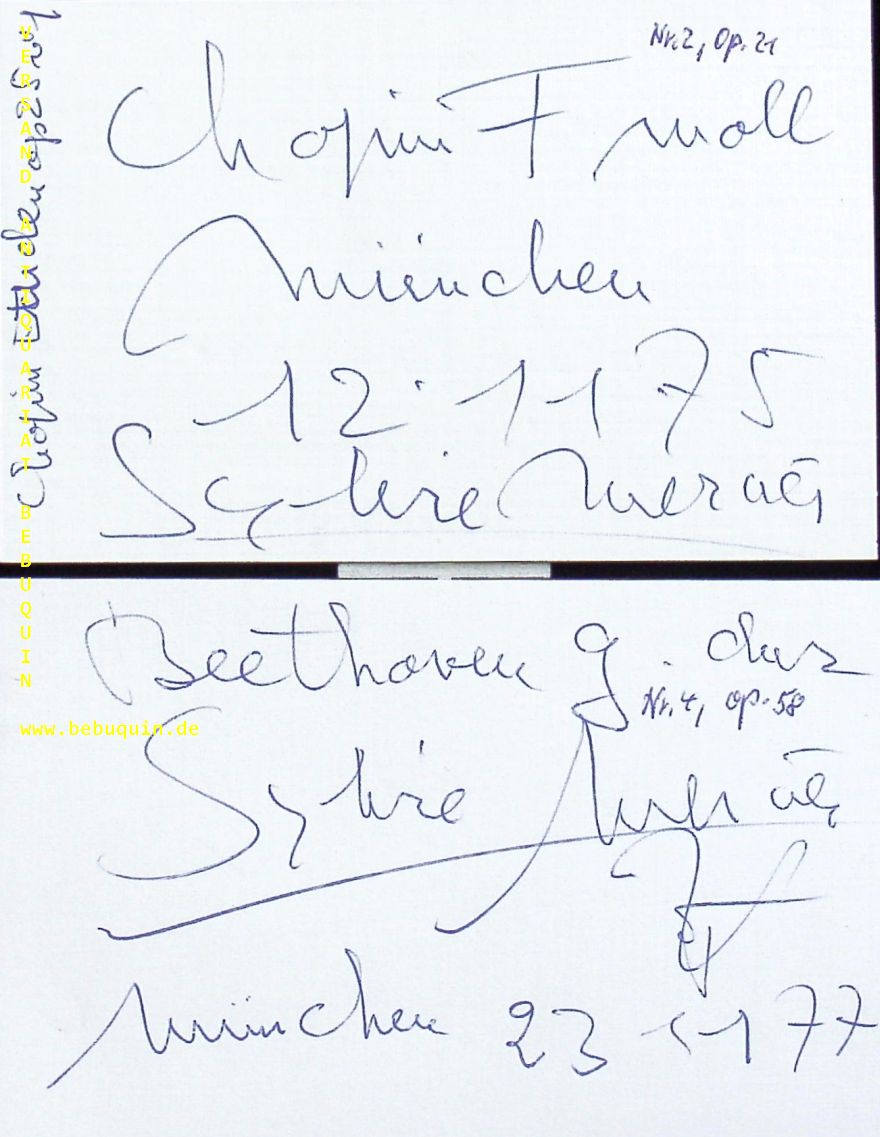 Nr. 2, Op. 21
Chopin F moll
München
12. 11 75
Sylvie Mercier
Chopin Etuden op 25
VERSAND ANTIQUARIAT BEBUQUIN
www.bebuquin.de
Beethoven g. dur
Nr. 4, op. 58
Sylvie Mercier
München 23 11 77